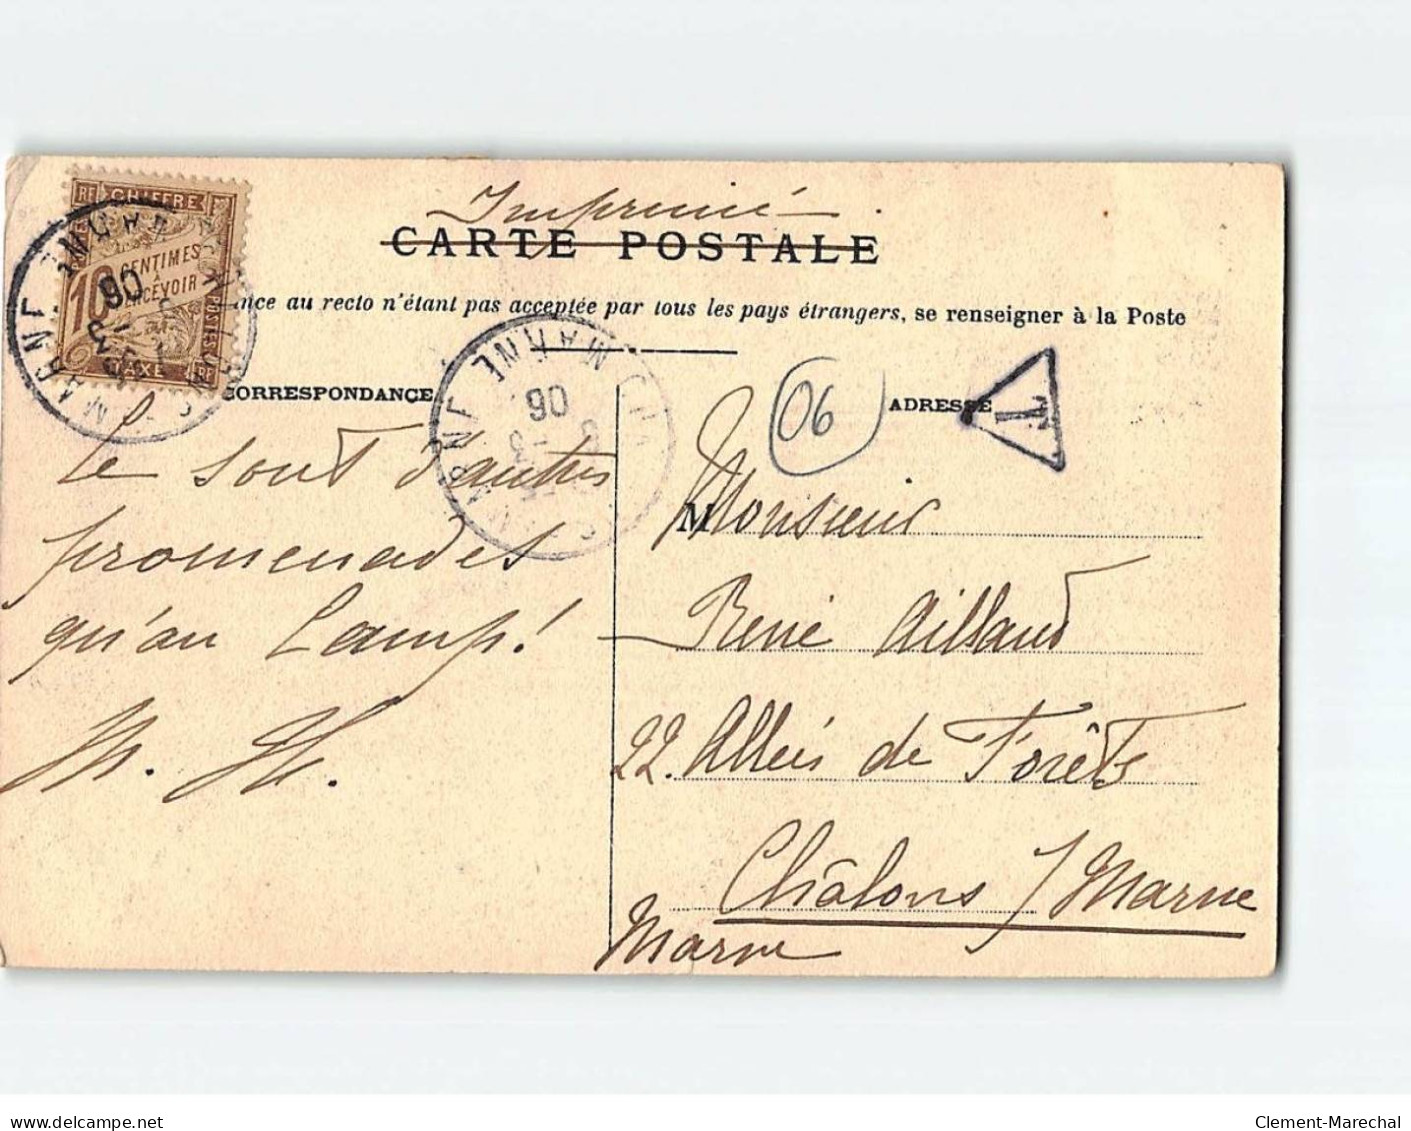 Imprimé
CARTE POSTALE
nce au recto n'étant pas acceptée par tous les pays étrangers, se renseigner à la Poste
RF CHIFFRE
10 CENTIMES
TAXE RF
CORRESPONDANCE
ADRESSE
T
06
MARNE
06
MARNE
06
Ce sont d'autres
promenades
qu'au Camp!
M. H.
Monsieur
René Aillaud
22. Allées de Forêts
Châlons s/Marne
Marne
delcampe.net
Clement-Marechal